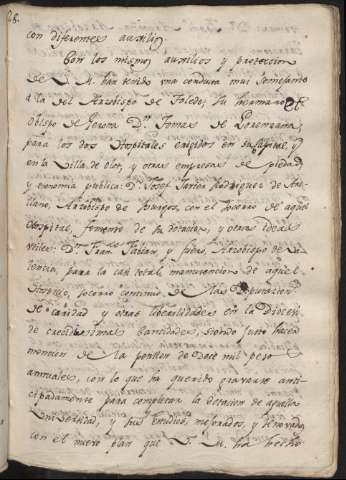 28.
con diferentes auxilios
Con los mismos auxilios y proteccion
de S. M. ha tenido una conducta mui semejante
a la del Arzobispo de Toledo, su hermano el
Obispo de Gerona Dn. Tomas de Lorenzana,
para los dos Hospitales erigidos en su Capital, y
en la Villa de Olot, y otras empresas de piedad
y economia publica: Dn. Josef Xavier Rodriguez de Are-
llano, Arzobispo de Burgos, con el socorro de aquel
Hospital, fomento de su dotacion, y otras ideas
utiles: Dn. Franco. Fabian y Fuero, Arzobispo de Va-
lencia, para la casi total manutencion de aquel
Hospicio, socorro continuo de las Diputaciones
de caridad y otras liberalidades en la Diocesi
de crecidisimas cantidades, siendo justo hacer
mencion de la pension de doce mil pesos
annuales, con lo que ha querido gravarse anti-
cipadamente para completar la dotacion de aquella
Universidad, y sus Estudios, mejorados, y renovados
con el nuevo plan que V. M. ha hecho